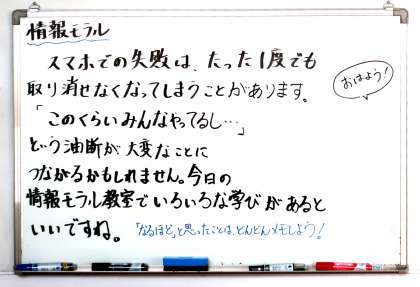 情報モラル
スマホでの失敗は、たった1度でも
取り消せなくなってしまうことがあります。
おはよう!
「このくらいみんなやってるし…」
という油断が大変なことに
つながるかもしれません。今日の
情報モラル教室でいろいろな学びがあると
いいですね。
「なるほど」と思ったことは、どんどんメモしよう!